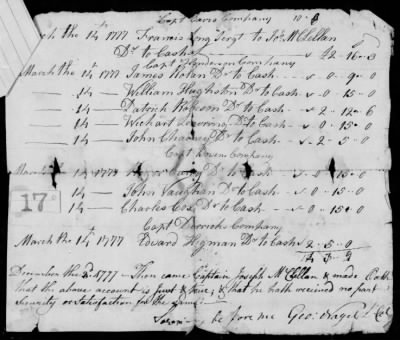 Capt Davis Company
March the 14th 1777 Francis Long Sergt to Jos. McClellan
Dr to Cash 2-16-3
Capt Henderson Company
March the 14th 1777 James Nolan Dr to Cash 0-9-0
14 William Hughston Dr to Cash 0-15-0
14 Patrick Robeson Dr to Cash 2-12-6
14 Dr to Cash 0-15-0
14 John Dr to Cash 2-5-0
Capt Company
March 14th 1777 Dr to Cash 0-15-0
14 John Vaughan Dr to Cash 0-15-0
14 Charles Cox Dr to Cash 0-15-0
17
Capt Company
March the 14th 1777 Edward Hyman Dr to Cash 2-5-0
December the 1777 Then came Captain Joseph McClellan & made Oath
that the above account is just & true, & that he hath received no part
Security or Satisfaction for the same
Sworn before me Geo: Nagel Col